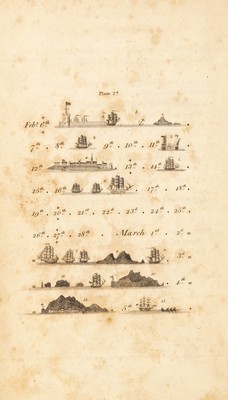 Plate 2d
Feby. 6th
7th . 8th 9th . 10th . 11th
12th 13th . 14th
15th . 16th . 17th . 18th .
19th . 20th . 21st . 22nd . 23rd . 24th . 25th .
26th . 27th . 28th . March 1st . 2d .
3d .
4th .
5th .